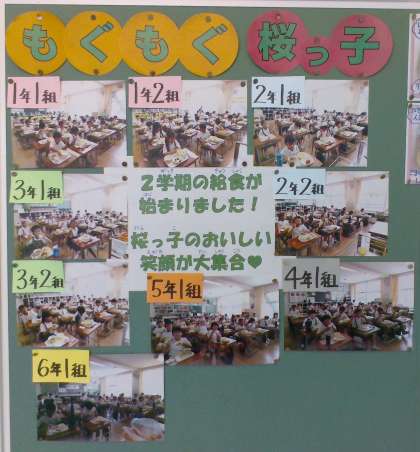 もぐもぐ 桜っ子
1年1組
1年2組
2年1組
3年1組
2学期の給食が
始まりました！
桜っ子のおいしい
笑顔が大集合♥
2年2組
3年2組
5年1組
4年1組
6年1組